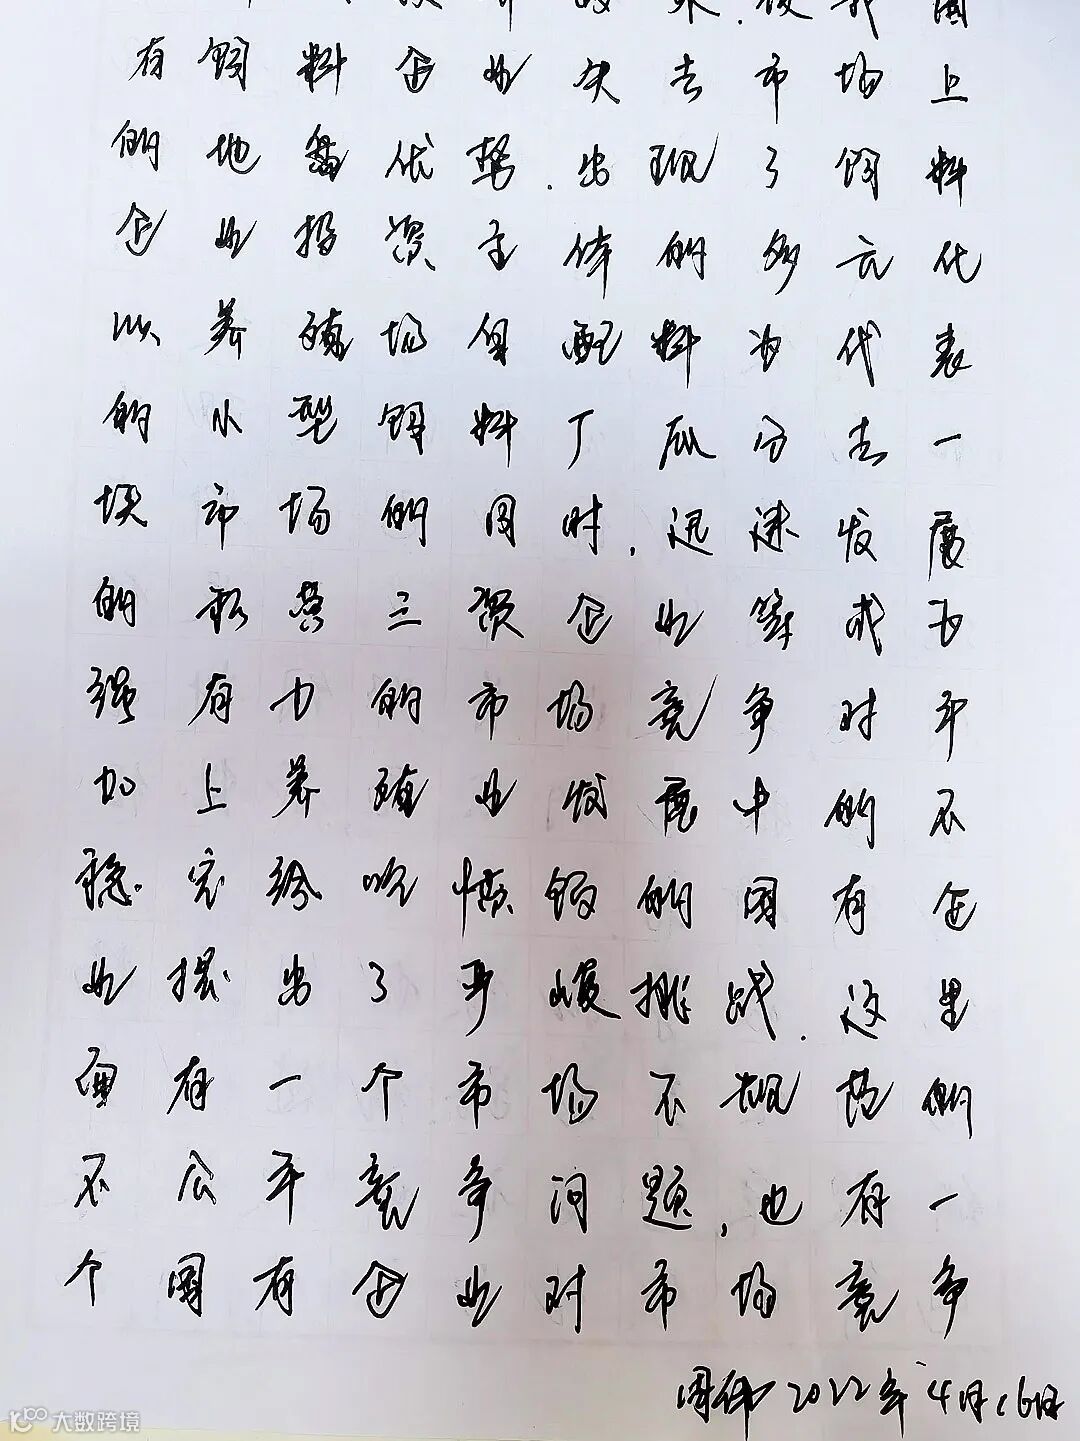 使我国
有饲料企业失去市场上
的地盘优势.出现了饲料
企业投资主体的多元化
以养殖场自配料为代表
的小型饲料厂瓜分去一
块市场的同时,迅速发展
的私营三资企业等成为
强有力的市场竞争对手
加上养殖业发展中的不
稳定给吃惯饭的国有企
业摆出了严峻挑战.这里
面有一个市场不规范的
不公平竞争问题,也有一
个国有企业对市场竞争
周伟2022年4月16日
大数跨境